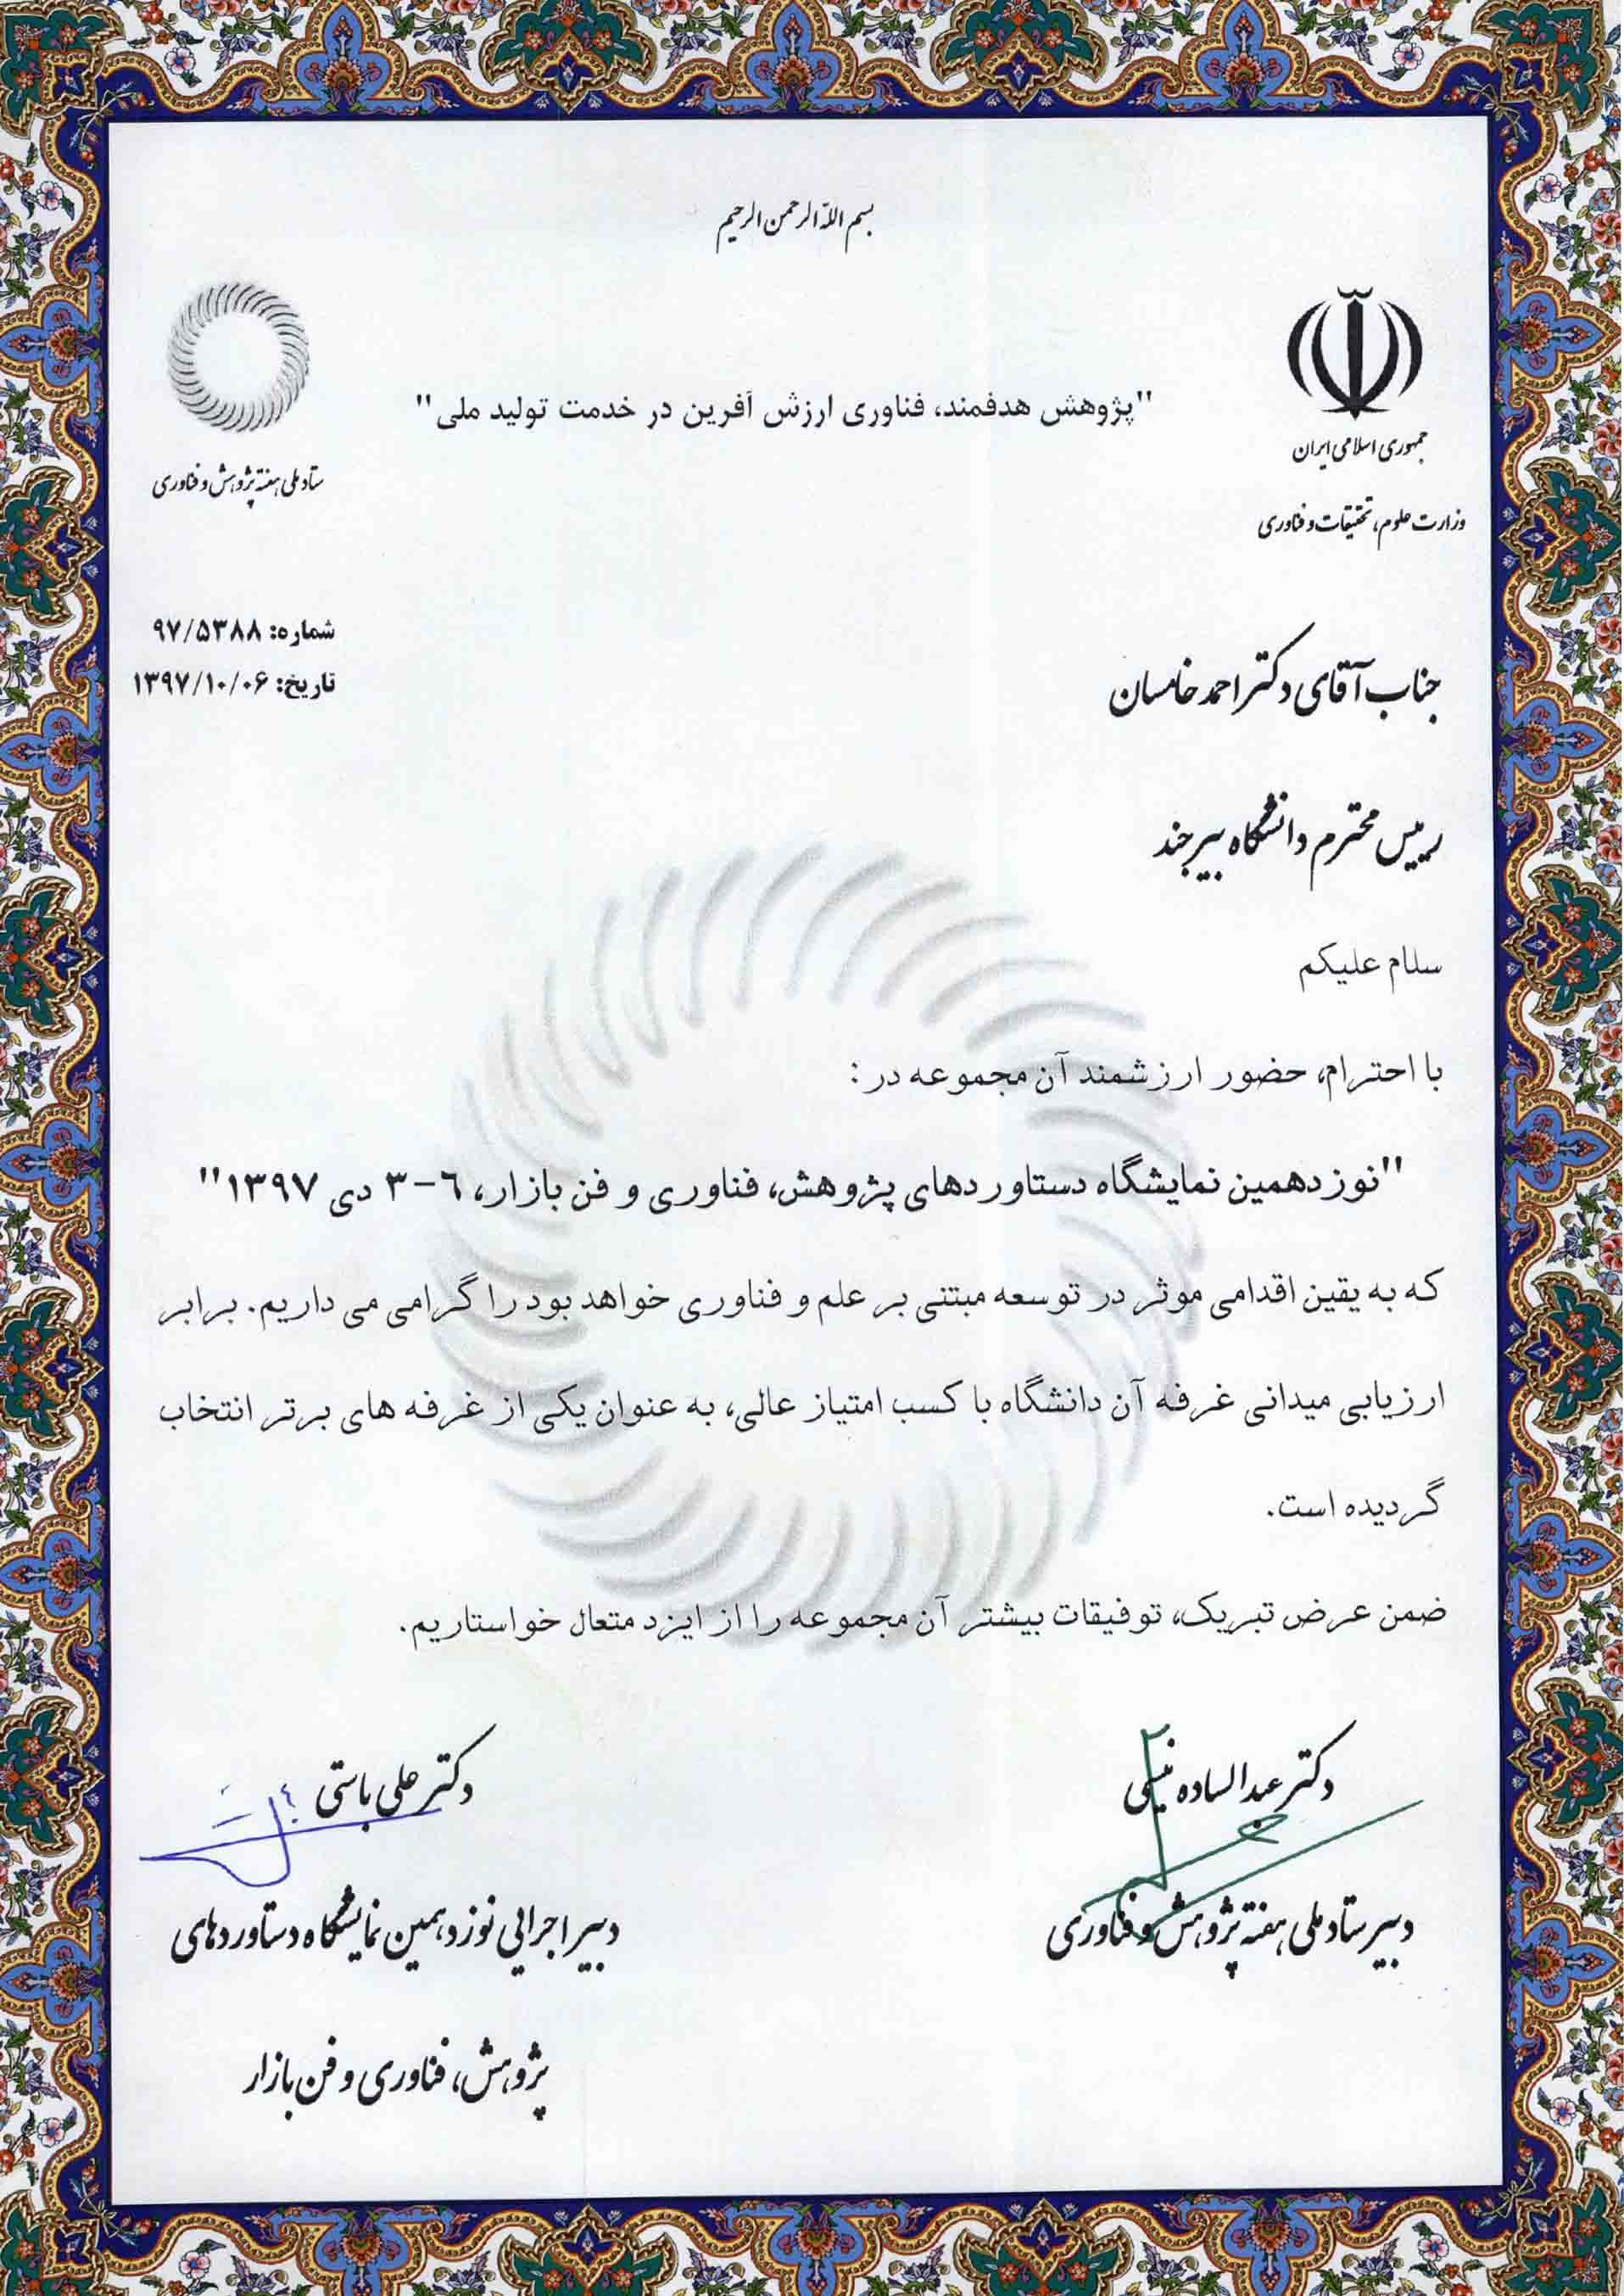 بسم الله الرحمن الرحیم
جمهوری اسلامی ایران
وزارت علوم، تحقیقات و فناوری
"پژوهش هدفمند، فناوری ارزش آفرین در خدمت تولید ملی"
ستاد ملی هفته پژوهش و فناوری
شماره: ۹۷/۵۳۸۸
تاریخ: ۱۳۹۷/۱۰/۰۶
جناب آقای دکتر احمد خامسان
رییس محترم دانشگاه بیرجند
سلام علیکم
با احترام، حضور ارزشمند آن مجموعه در :
"نوزدهمین نمایشگاه دستاوردهای پژوهش، فناوری و فن بازار، ۶-۳ دی ۱۳۹۷"
که به یقین اقدامی موثر در توسعه مبتنی بر علم و فناوری خواهد بود را گرامی می داریم. برابر
ارزیابی میدانی غرفه آن دانشگاه با کسب امتیاز عالی، به عنوان یکی از غرفه های برتر انتخاب
گردیده است.
ضمن عرض تبریک، توفیقات بیشتر آن مجموعه را از ایزد متعال خواستاریم.
دکتر عبدالساده نیسی
دبیر ستاد ملی هفته پژوهش و فناوری
دکتر علی باستی
دبیر اجرایی نوزدهمین نمایشگاه دستاوردهای
پژوهش، فناوری و فن بازار